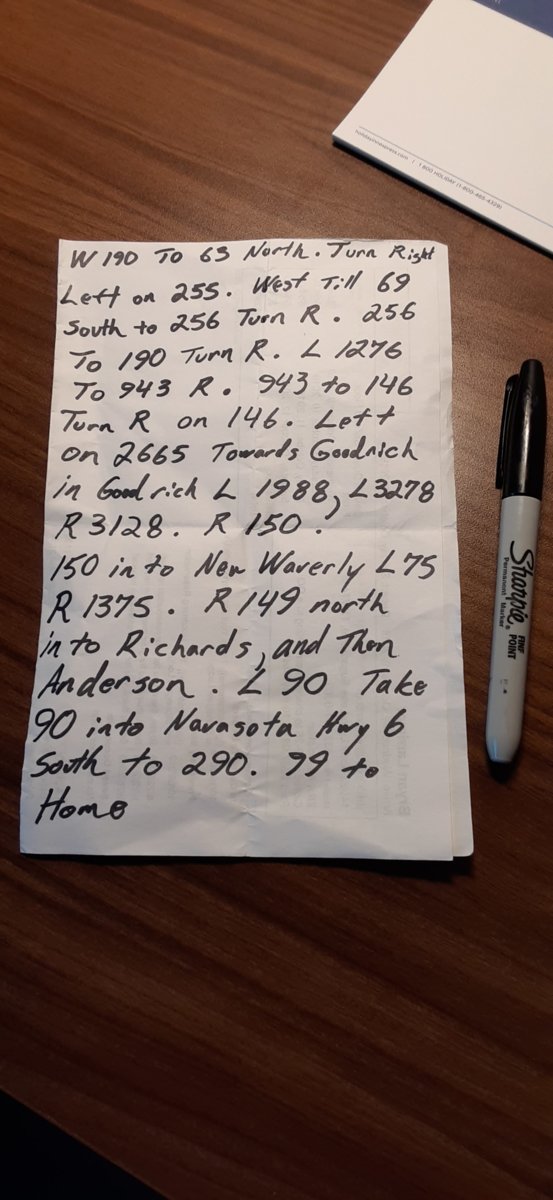 holidayinnexpress.com / 1 800 HOLIDAY (1-800-465-4329)
W 190 To 63 North. Turn Right
Left on 255. West Till 69
South to 256 Turn R. 256
To 190 Turn R. L 1276
To 943 R. 943 to 146
Turn R on 146. Left
on 2665 Towards Goodrich
in Goodrich L 1988, L3278
R 3128. R 150.
150 in to New Waverly L75
R 1375. R 149 north
in to Richards, and Then
Anderson. L 90 Take
90 into Navasota Hwy 6
South to 290. 99 to
Home
Sharpie
FINE POINT
Permanent Marker